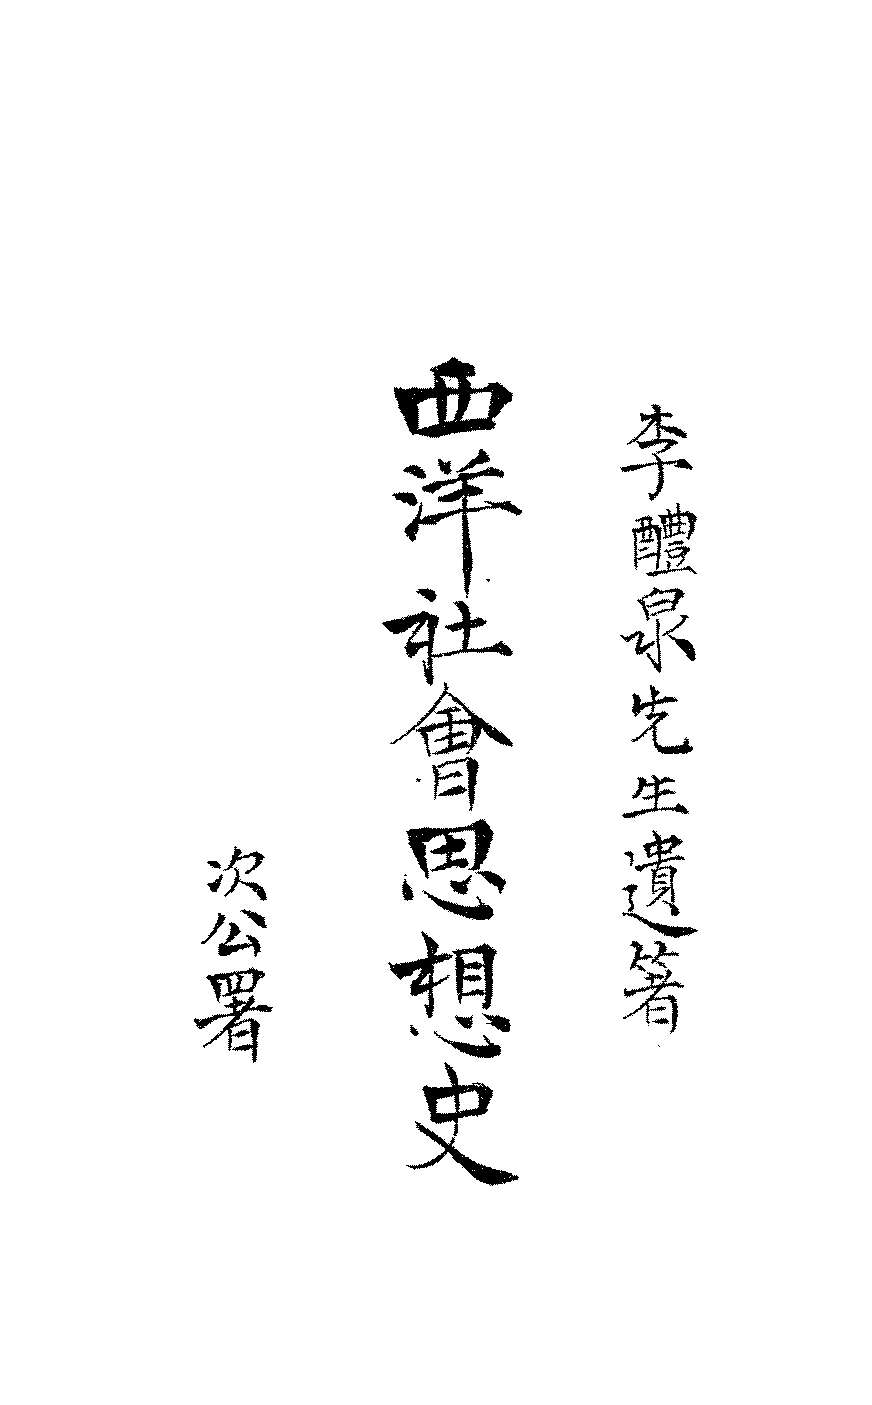 李醴泉先生遺箸
西洋社會思想史
次公署